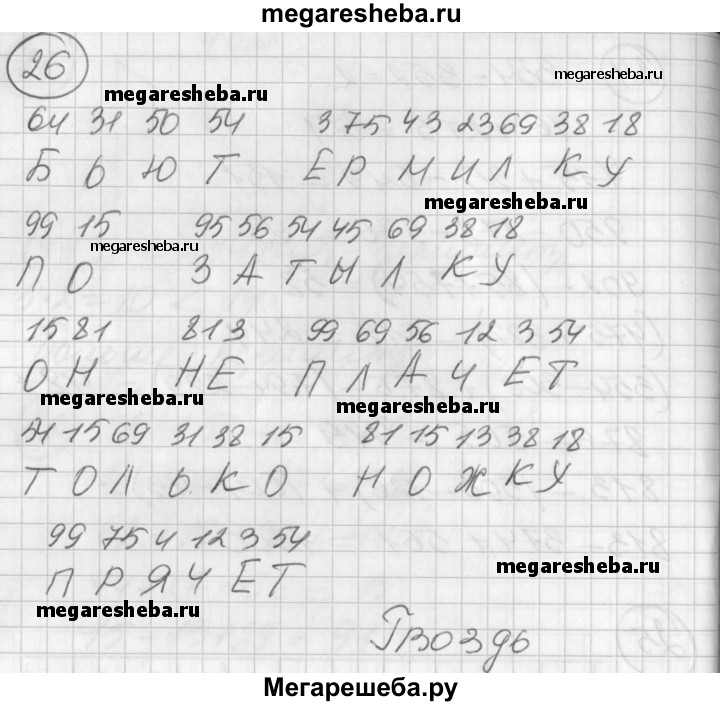 megaresheba.ru
26
megaresheba.ru
megaresheba.ru
64 31 50 54 3 75 43 23 69 38 18
Б Ь Ю Т Е Р М И Л К У
megaresheba.ru
99 15 95 56 54 45 69 38 18
megaresheba.ru
П О З А Т Ы Л К У
15 81 81 3 99 69 56 12 3 54
О Н Н Е П Л А Ч Е Т
megaresheba.ru megaresheba.ru
54 15 69 31 38 15 81 15 13 38 18
Т О Л Ь К О Н О Ж К У
99 75 4 12 3 54
megaresheba.ru
П Р Я Ч Е Т
megaresheba.ru
Гвоздь
Мегарешеба.ру